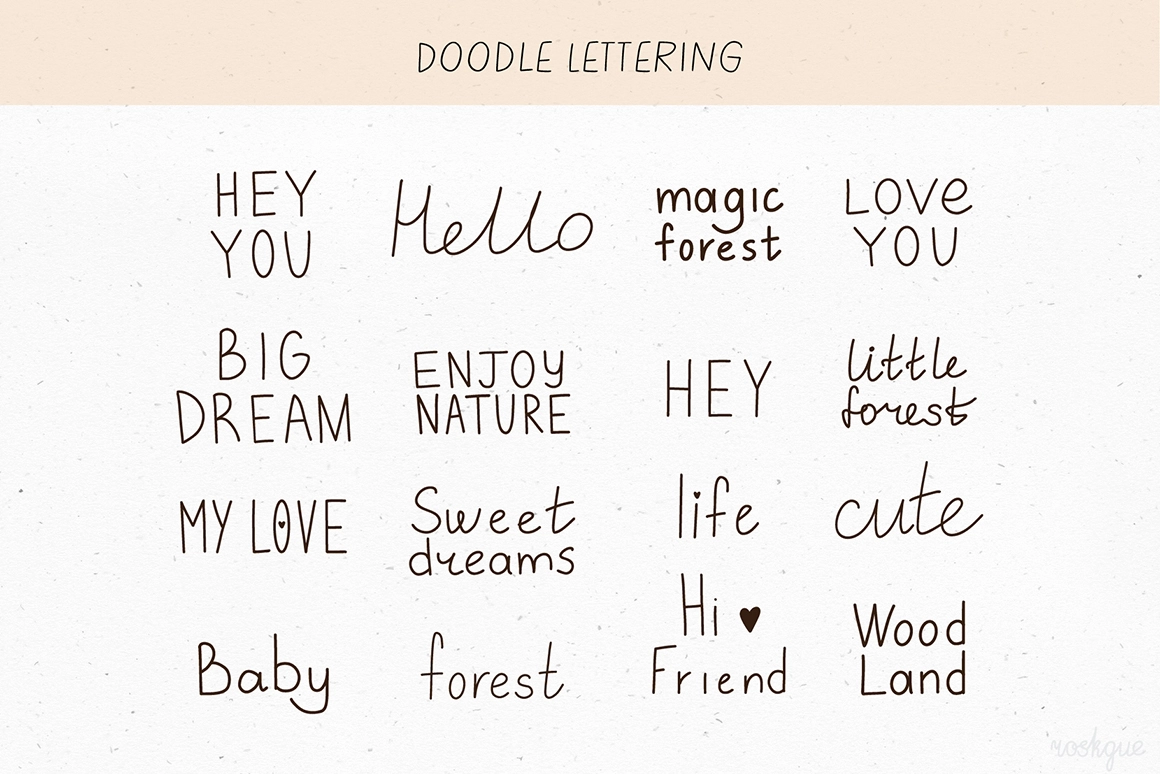 DOODLE LETTERING
HEY
YOU
Hello
magic
forest
LOVe
YOU
BIG
DREAM
ENJOY
NATURE
HEY
little
forest
MY LOVE
Sweet
dreams
life
cute
Baby
forest
Hi ♥
Friend
Wood
Land
roskgue